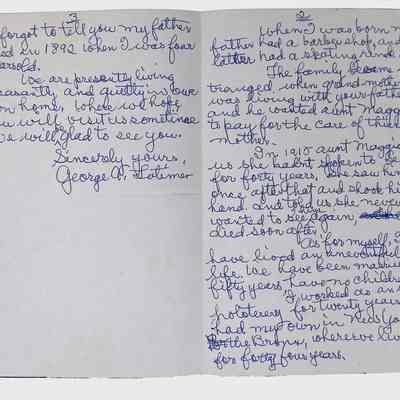 3
forgot to tell you my father
ed in 1892 when I was four
ars old.
We are presently living
easantly and quietly in our
own home, where we hope
u will visit us sometime
we will glad to see you.
Sincerely yours,
George A. Latimer
2
When I was born m
father had a barber shop, and
father had a skating rink
The family became
tranged, when grandmother
was living with your father
and he wanted aunt Maggi
to pay for the care of their
mother.
In 1910 aunt Maggie
us she hadnt spoken to
for forty years, she saw him
once after that and shook his
hand. and told us she never
wanted to see him again,
died soon after.
As for myself,
have lived an uneventful
life. We have been married
fifty years have no children
I worked as an
for twenty years
had my own in New Yo
the Bronx, where we liv
for forty four years.